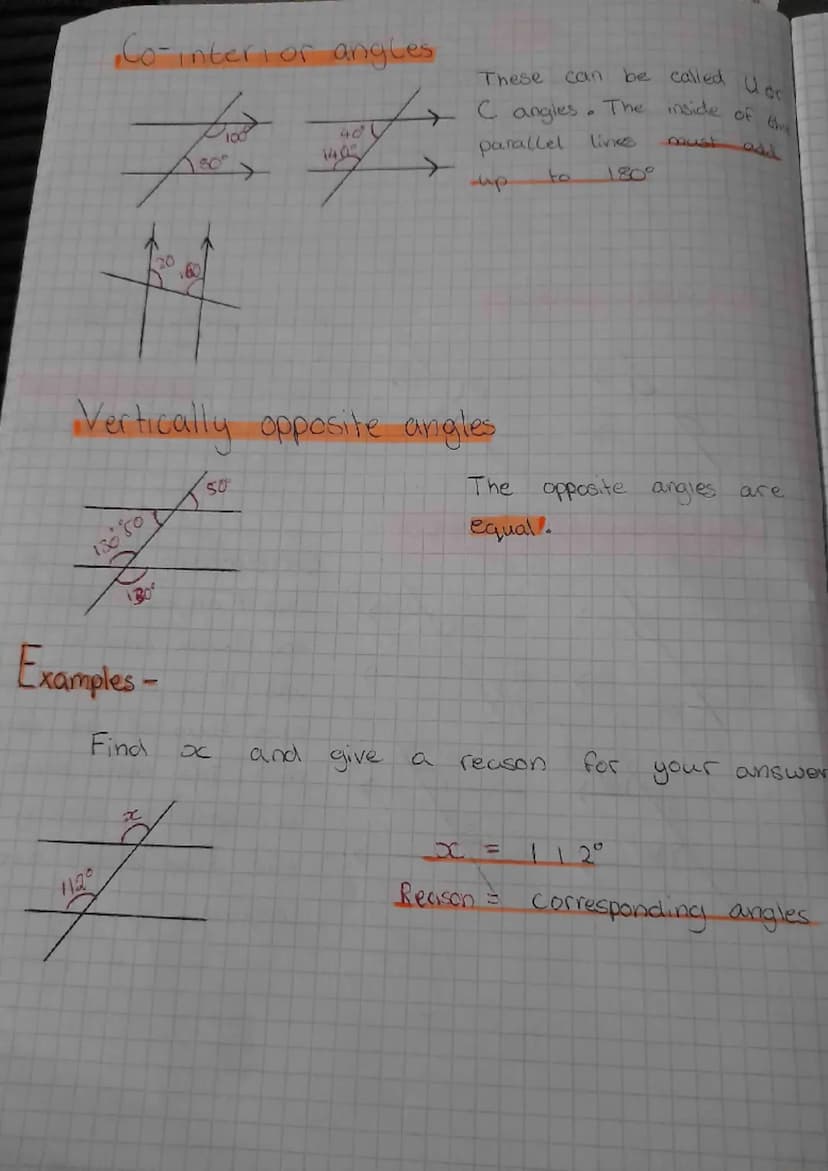 Co-interior angles
These can be called U or
C angles. The inside of the
parallel lines must add
up to 180°
100°
80°
40°
140°
20 160
Vertically opposite angles
50°
50
130°
130°
The opposite angles are
equal.
Examples -
Find x and give a reason for your answer
x
112°
x = 112°
Reason = corresponding angles